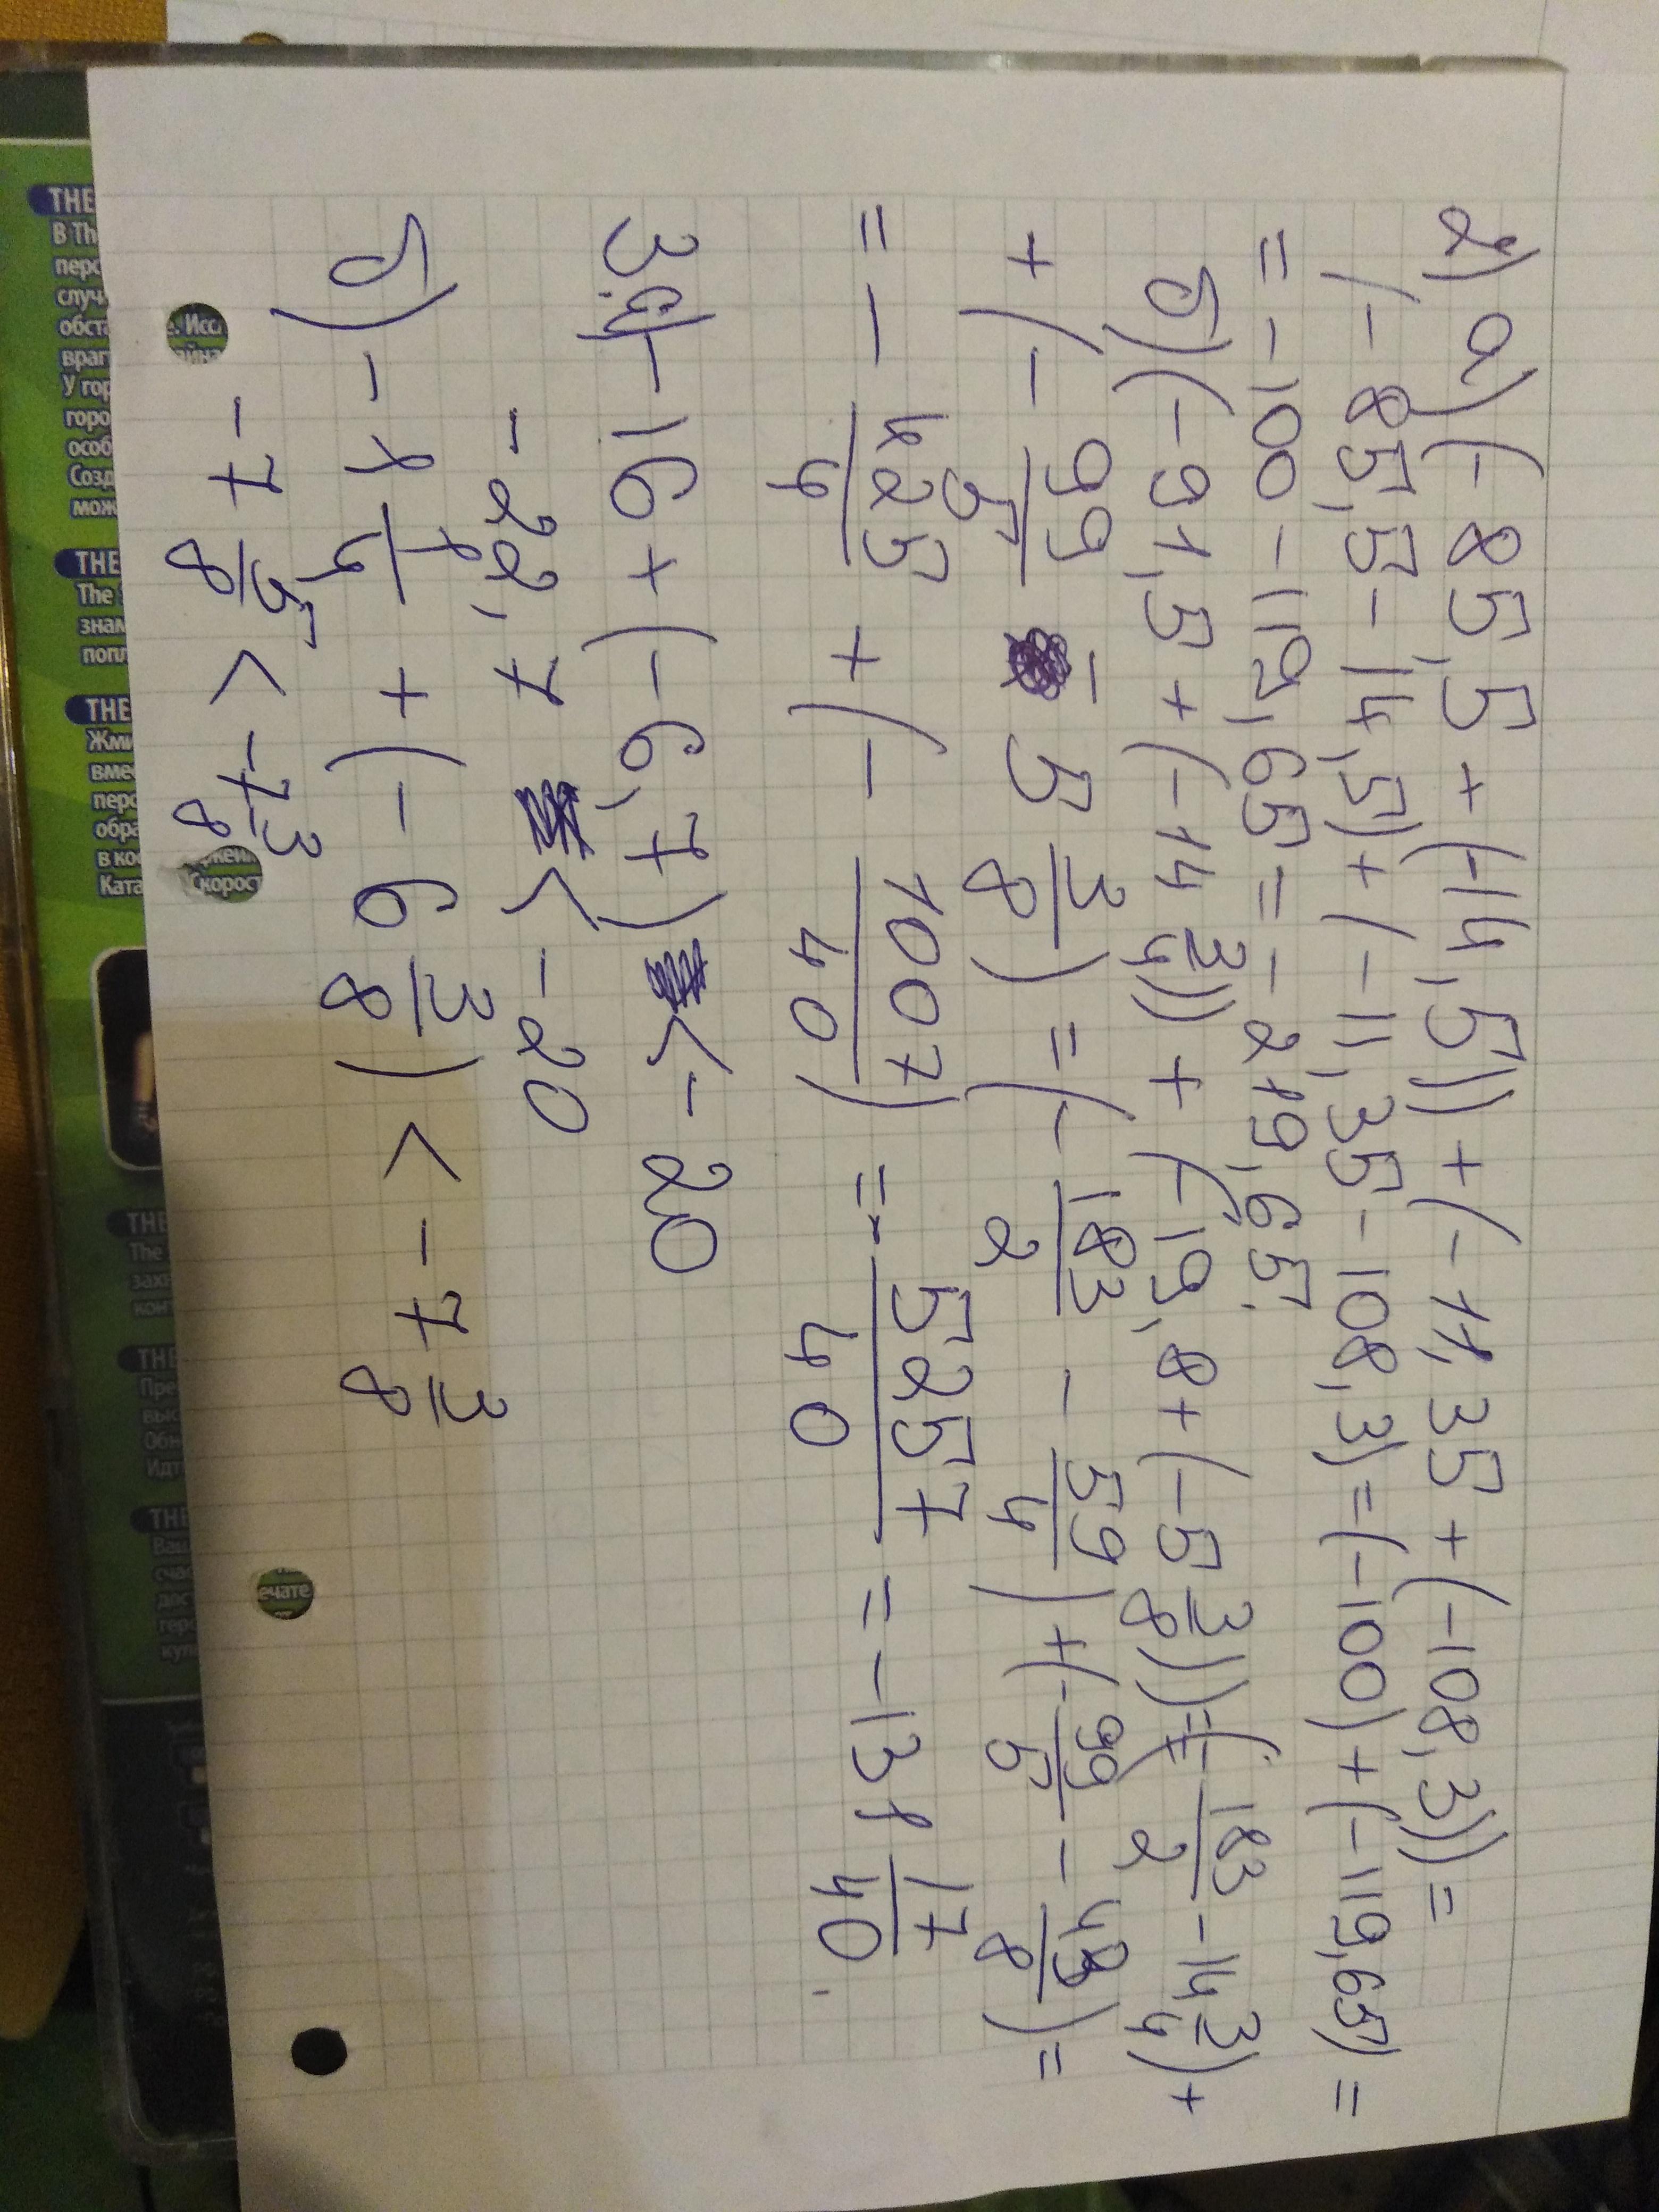 2) а) (-85,5+(-14,5))+(-11,35+(-108,3))=
(-85,5-14,5)+(-11,35-108,3)=(-100)+(-119,65)=
=-100-119,65=-219,65.
б) (-91,5+(-14 3/4))+(-19,8+(-5 3/8))=(-183/2-14 3/4)+
+(-99/5-5 3/8)=(-183/2-59/4)+(-99/5-43/8)=
=-425/4+(-1007/40)=-5257/40=-131 17/40.
3.а)-16+(-6,7)<-20
-22,7<-20
б) -1 1/4+(-6 3/8)<-7 3/8
-7 5/8<-7 3/8
THE
В Th
перс
случ
обст
враг
У гор
горо
особ
Созд
мож
THE
The
знам
попл
THE
Жми
вмес
перс
обра
в ко
Ката
. Исс
айна
Скорост
ечате
THE
The
захв
кон
THE
Пре
выс
Обн
Идт
THE
Ваш
счас
дос
гер
кул